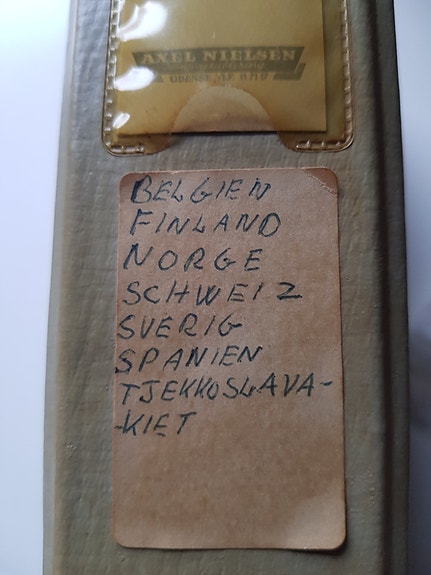 AXEL NIELSEN
BELGIEN
FINLAND
NORGE
SCHWEIZ
SVERIG
SPANIEN
TJEKKOSLAVA-
-KIET